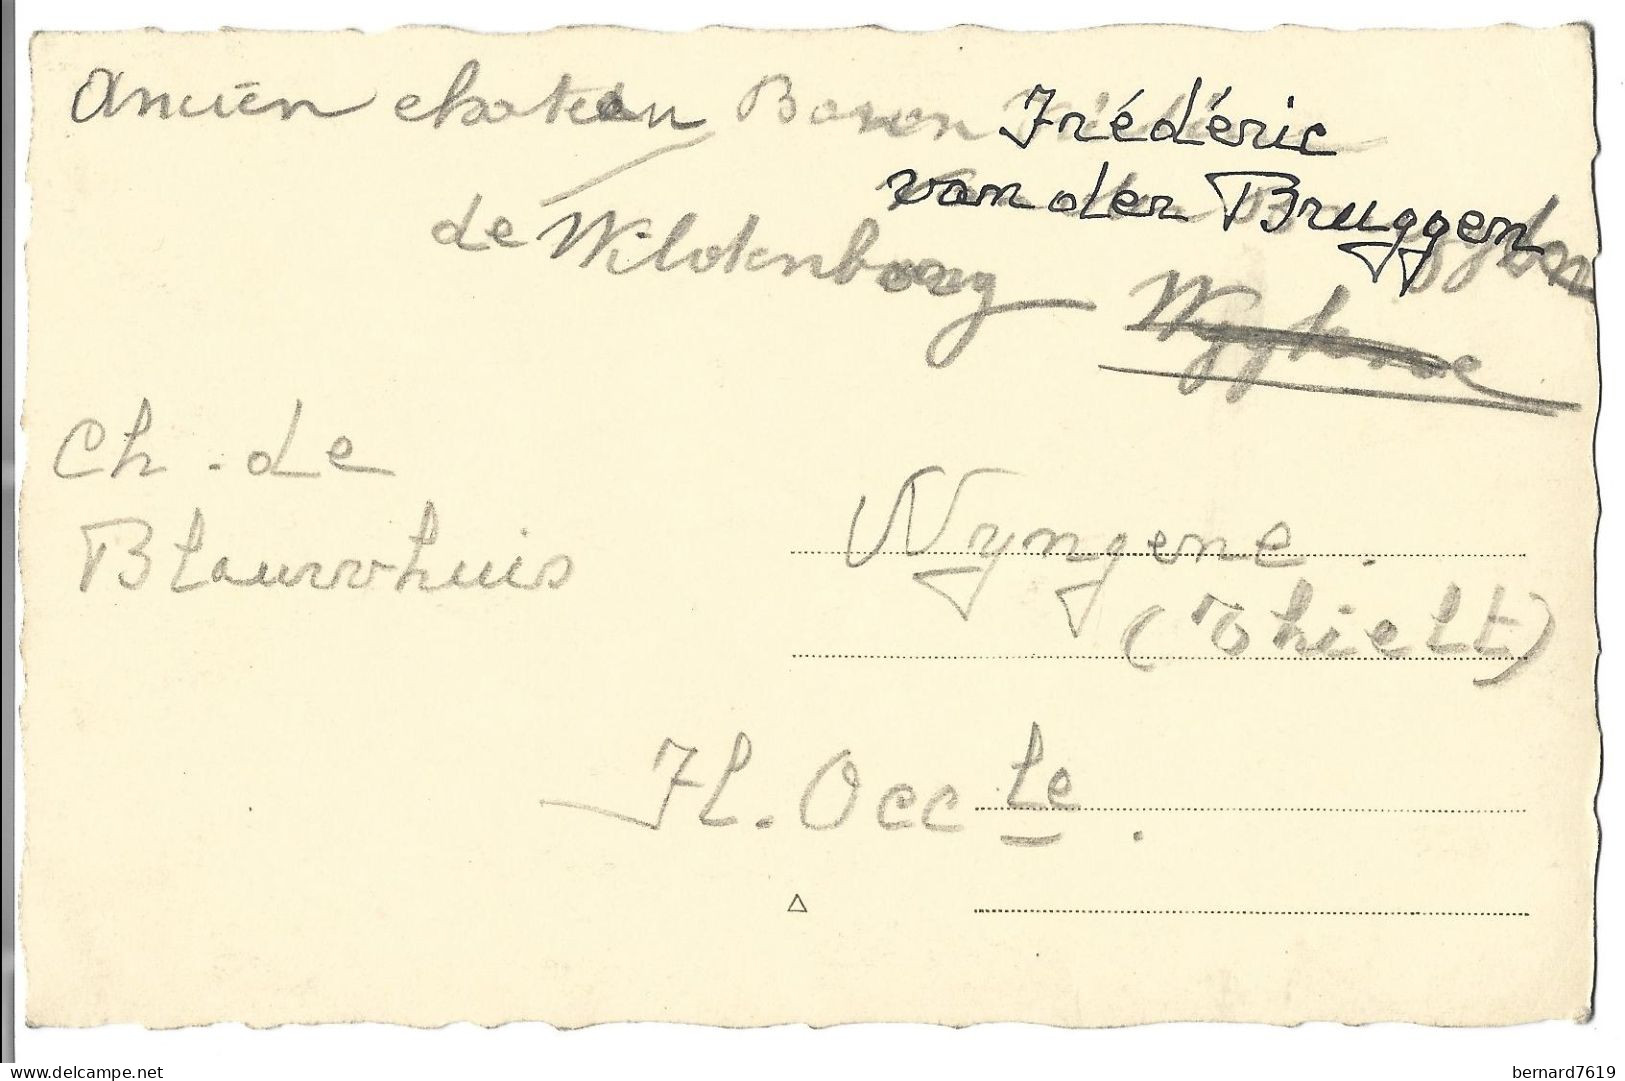 Ancien chateau Baron Frédéric
van der Bruggen
de Wildenborg
Ch. de
Blauwhuis
Wyngene.
(Thielt)
Fl. Occ le.
bernard7619